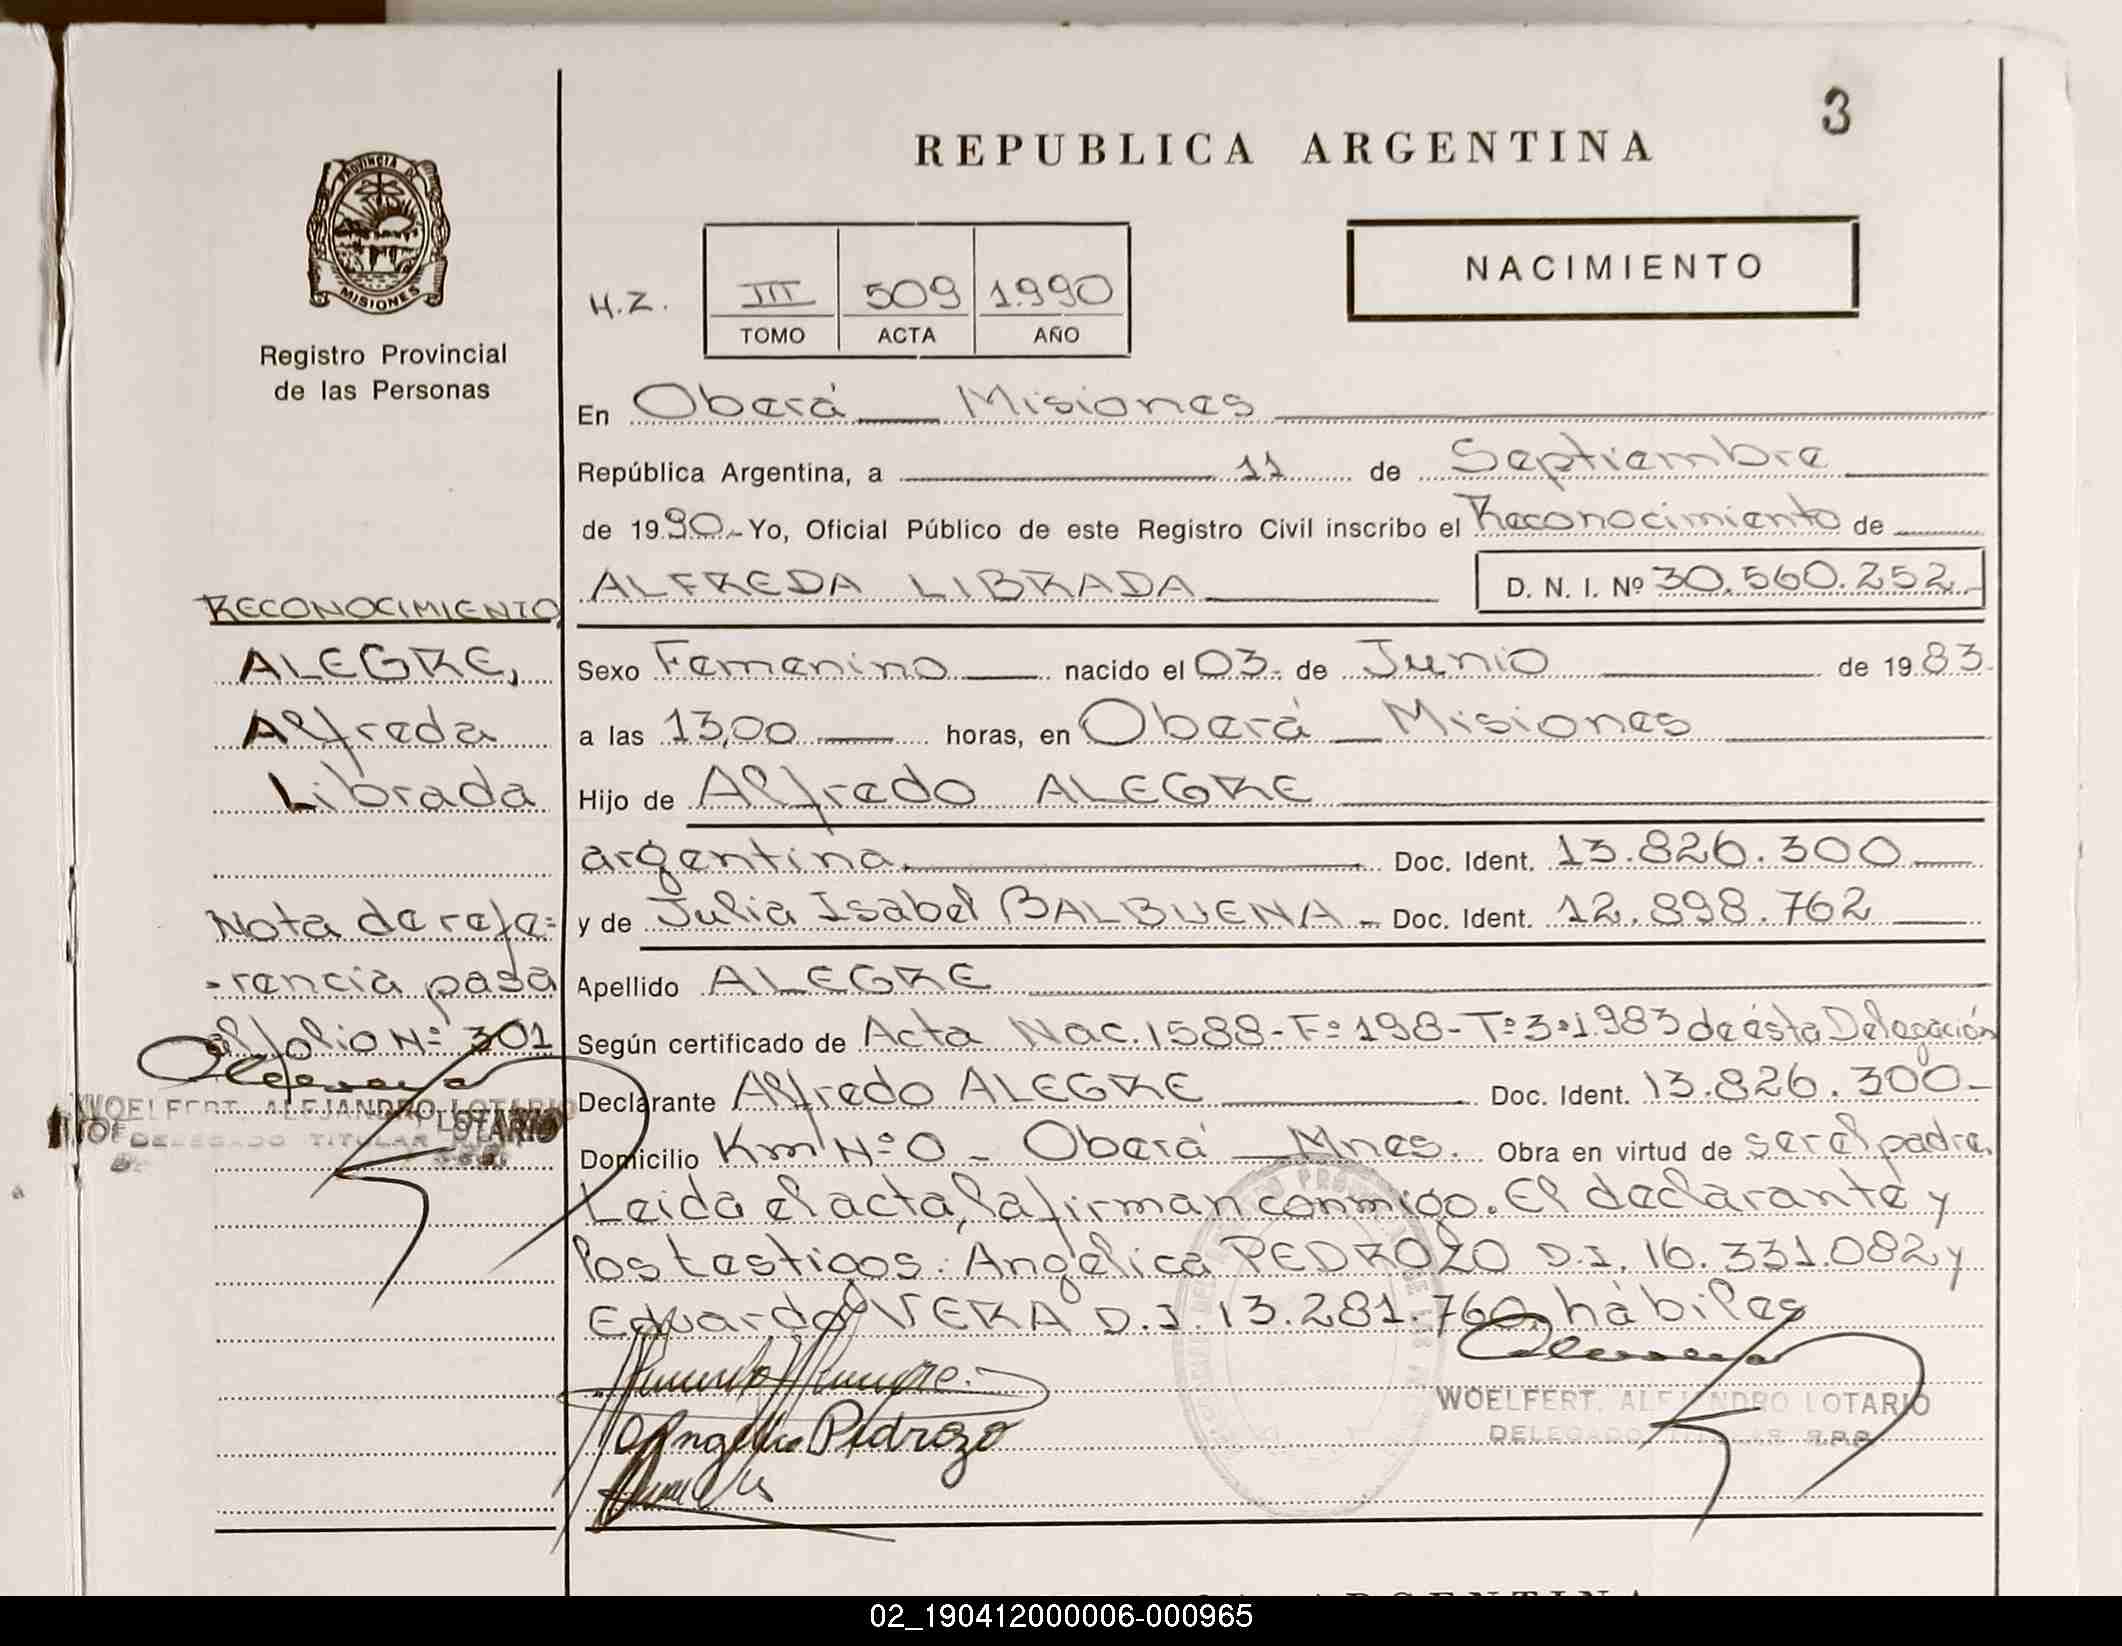 3
REPUBLICA ARGENTINA
PROVINCIA DE
MISIONES
Registro Provincial
de las Personas
H.Z.
III 509 1990
TOMO ACTA AÑO
NACIMIENTO
En Oberá Misiones
República Argentina, a 11 de Septiembre
de 1990.- Yo, Oficial Público de este Registro Civil inscribo el Reconocimiento de
ALFREDA LIBRADA D. N. I. Nº 30.560.252.-
Sexo Femenino nacido el 03. de Junio de 1983.
a las 13,00 horas, en Oberá Misiones
Hijo de Alfredo ALEGRE
argentina. Doc. Ident. 13.826.300
y de Julia Isabel BALBUENA.- Doc. Ident. 12.898.762
Apellido ALEGRE
Según certificado de Acta Nac. 1588-Fº198-Tº3º1.983 de ésta Delegación
Declarante Alfredo ALEGRE Doc. Ident. 13.826.300-
Domicilio Km Nº 0 - Oberá Mnes. Obra en virtud de ser el padre.
Leida el acta, la firman conmigo. El declarante y
los testigos: Angélica PEDROZO D.I. 16.331.082 y
Eduardo VERA D.I. 13.281.760, hábiles
Angelica Pedrozo
WOELFERT, ALEJANDRO LOTARIO
DELEGADO TITULAR R.P.P.
RECONOCIMIENTO
ALEGRE,
Alfreda
Librada
Nota de refe-
-rencia pasa
al folio Nº 301
WOELFERT, ALEJANDRO LOTARIO
DELEGADO TITULAR
ARGENTINA
02_190412000006-000965